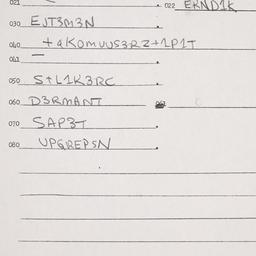 021 . 022 ERND1K
030 EJT3M3N .
040 +aKOMUUS3RZ+1P1T
041 — .
050 S+L1K3RC .
060 D3RMANT
070 SAP3T .
080 UPGREPSN .